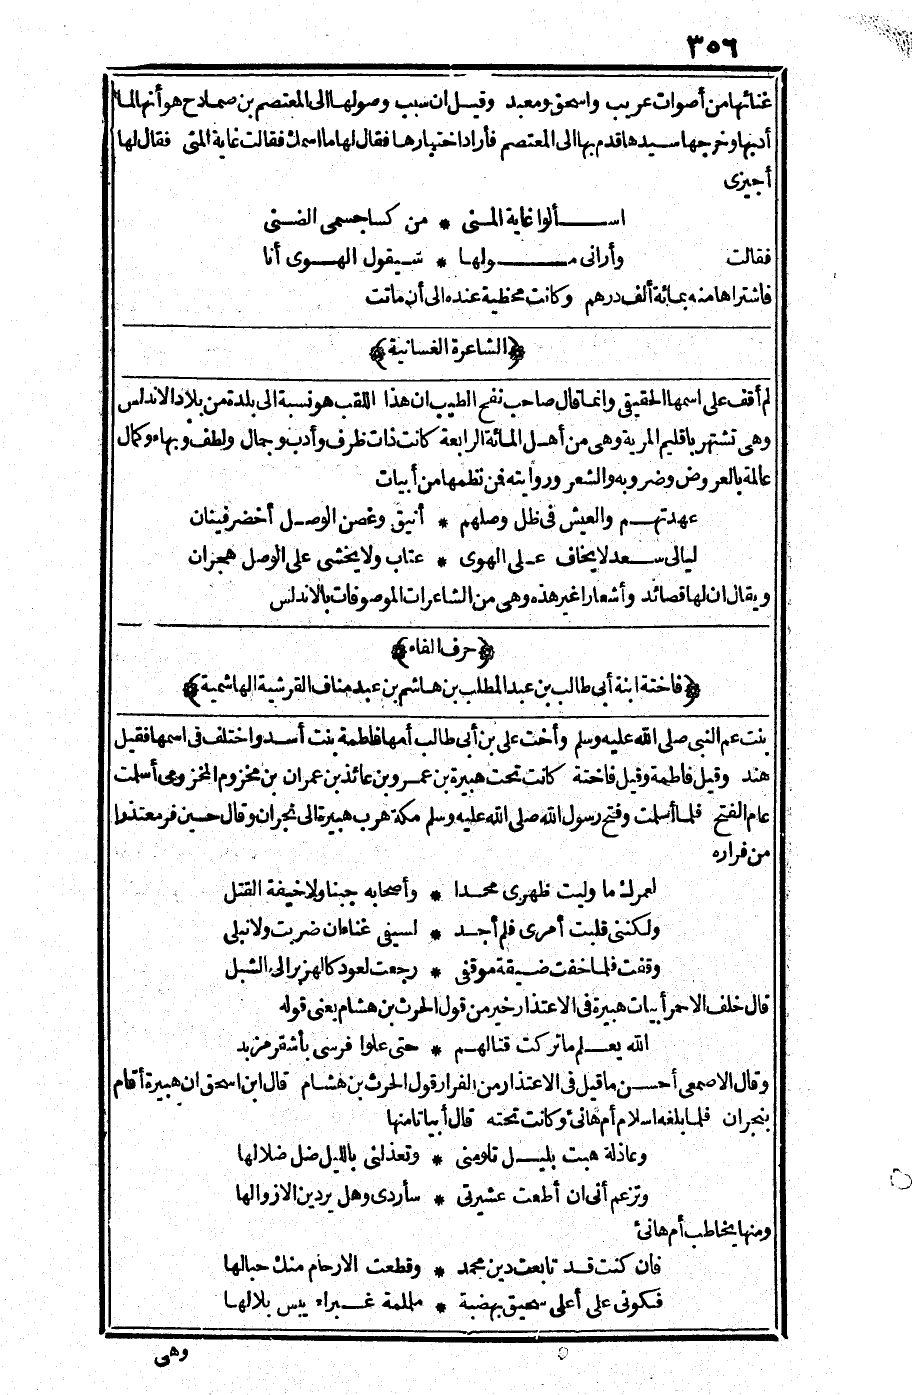 ٣٥٦
غنائها من أصوات عريب واسحق ومعبد وقيل ان سبب وصولها الى المعتصم بن صمادح هو أنها لما
أدبها وخرجها سيدها قدم بها الى المعتصم فأراد اختيارها فقال لها ما اسمك فقالت غاية المنى فقال لها
أجيزى
اســألوا غاية المنى * من كسا جسمى الضنى
فقالت وأرانى مــولها * سيقول الهــوى أنا
فاشتراها منه بمائة ألف درهم وكانت محظية عنده الى أن ماتت
﴿الشاعرة الغسانية﴾
لم أقف على اسمها الحقيقى وانما قال صاحب نفح الطيب ان هذا اللقب هو نسبة الى بلدة من بلاد الاندلس
وهى تشتهر باقليم المرية وهى من أهل المائة الرابعة كانت ذات ظرف وأدب وجمال ولطف وبهاء وكمال
عالمة بالعروض وضروبه والشعر وروايته فمن نظمها من أبيات
عهدتهــم والعيش فى ظل وصلهم * أنيق وغصن الوصل أخضر فينان
ليالى ســعد لا يخاف عــلى الهوى * عتاب ولا يخشى على الوصل هجران
ويقال ان لها قصائد وأشعارا غير هذه وهى من الشاعرات الموصوفات بالاندلس
﴿حرف الفاء﴾
﴿فاختة ابنة أبى طالب بن عبد المطلب بن هاشم بن عبد مناف القرشية الهاشمية﴾
بنت عم النبى صلى الله عليه وسلم وأخت على بن أبى طالب أمها فاطمة بنت أسد واختلف فى اسمها فقيل
هند وقيل فاطمة وقيل فاختة كانت تحت هبيرة بن عمرو بن عائذ بن عمران بن مخزوم المخزومى أسلمت
عام الفتح فلما أسلمت وفتح رسول الله صلى الله عليه وسلم مكة هرب هبيرة الى نجران وقال حسين فر معتذرا
من فراره
لعمرك ما وليت ظهرى محمدا * وأصحابه جبنا ولا خيفة القتل
ولكننى قلبت أمرى فلم أجــد * لسيفى غناء ان ضربت ولا نبلى
وقفت فلما خفت ضيقة موقفى * رجعت لعود كالهزبر الى الشبل
قال خلف الاحمر أبيات هبيرة فى الاعتذار خير من قول الحرث بن هشام يعنى قوله
الله يعــلم ما تركت قتالهــم * حتى علوا فرسى بأشقر مزبد
وقال الاصمعى أحســن ما قيل فى الاعتذار من الفرار قول الحرث بن هشام قال ابن اسحق ان هبيرة أقام
بنجران فلما بلغه اسلام أم هانئ وكانت تحته قال أبياتا منها
وعاذلة هبت بليــل تلومنى * وتعذلنى بالليل ضل ضلالها
وتزعم أنى ان أطعت عشيرتى * سأردى وهل يردين الا زوالها
ومنها يخاطب أم هانئ
فان كنت قــد تابعت دين محمد * وقطعت الارحام منك حبالها
فكونى على أعلى سحيق بهضبة * ململمة غــبراء يبس بلالها
وهى